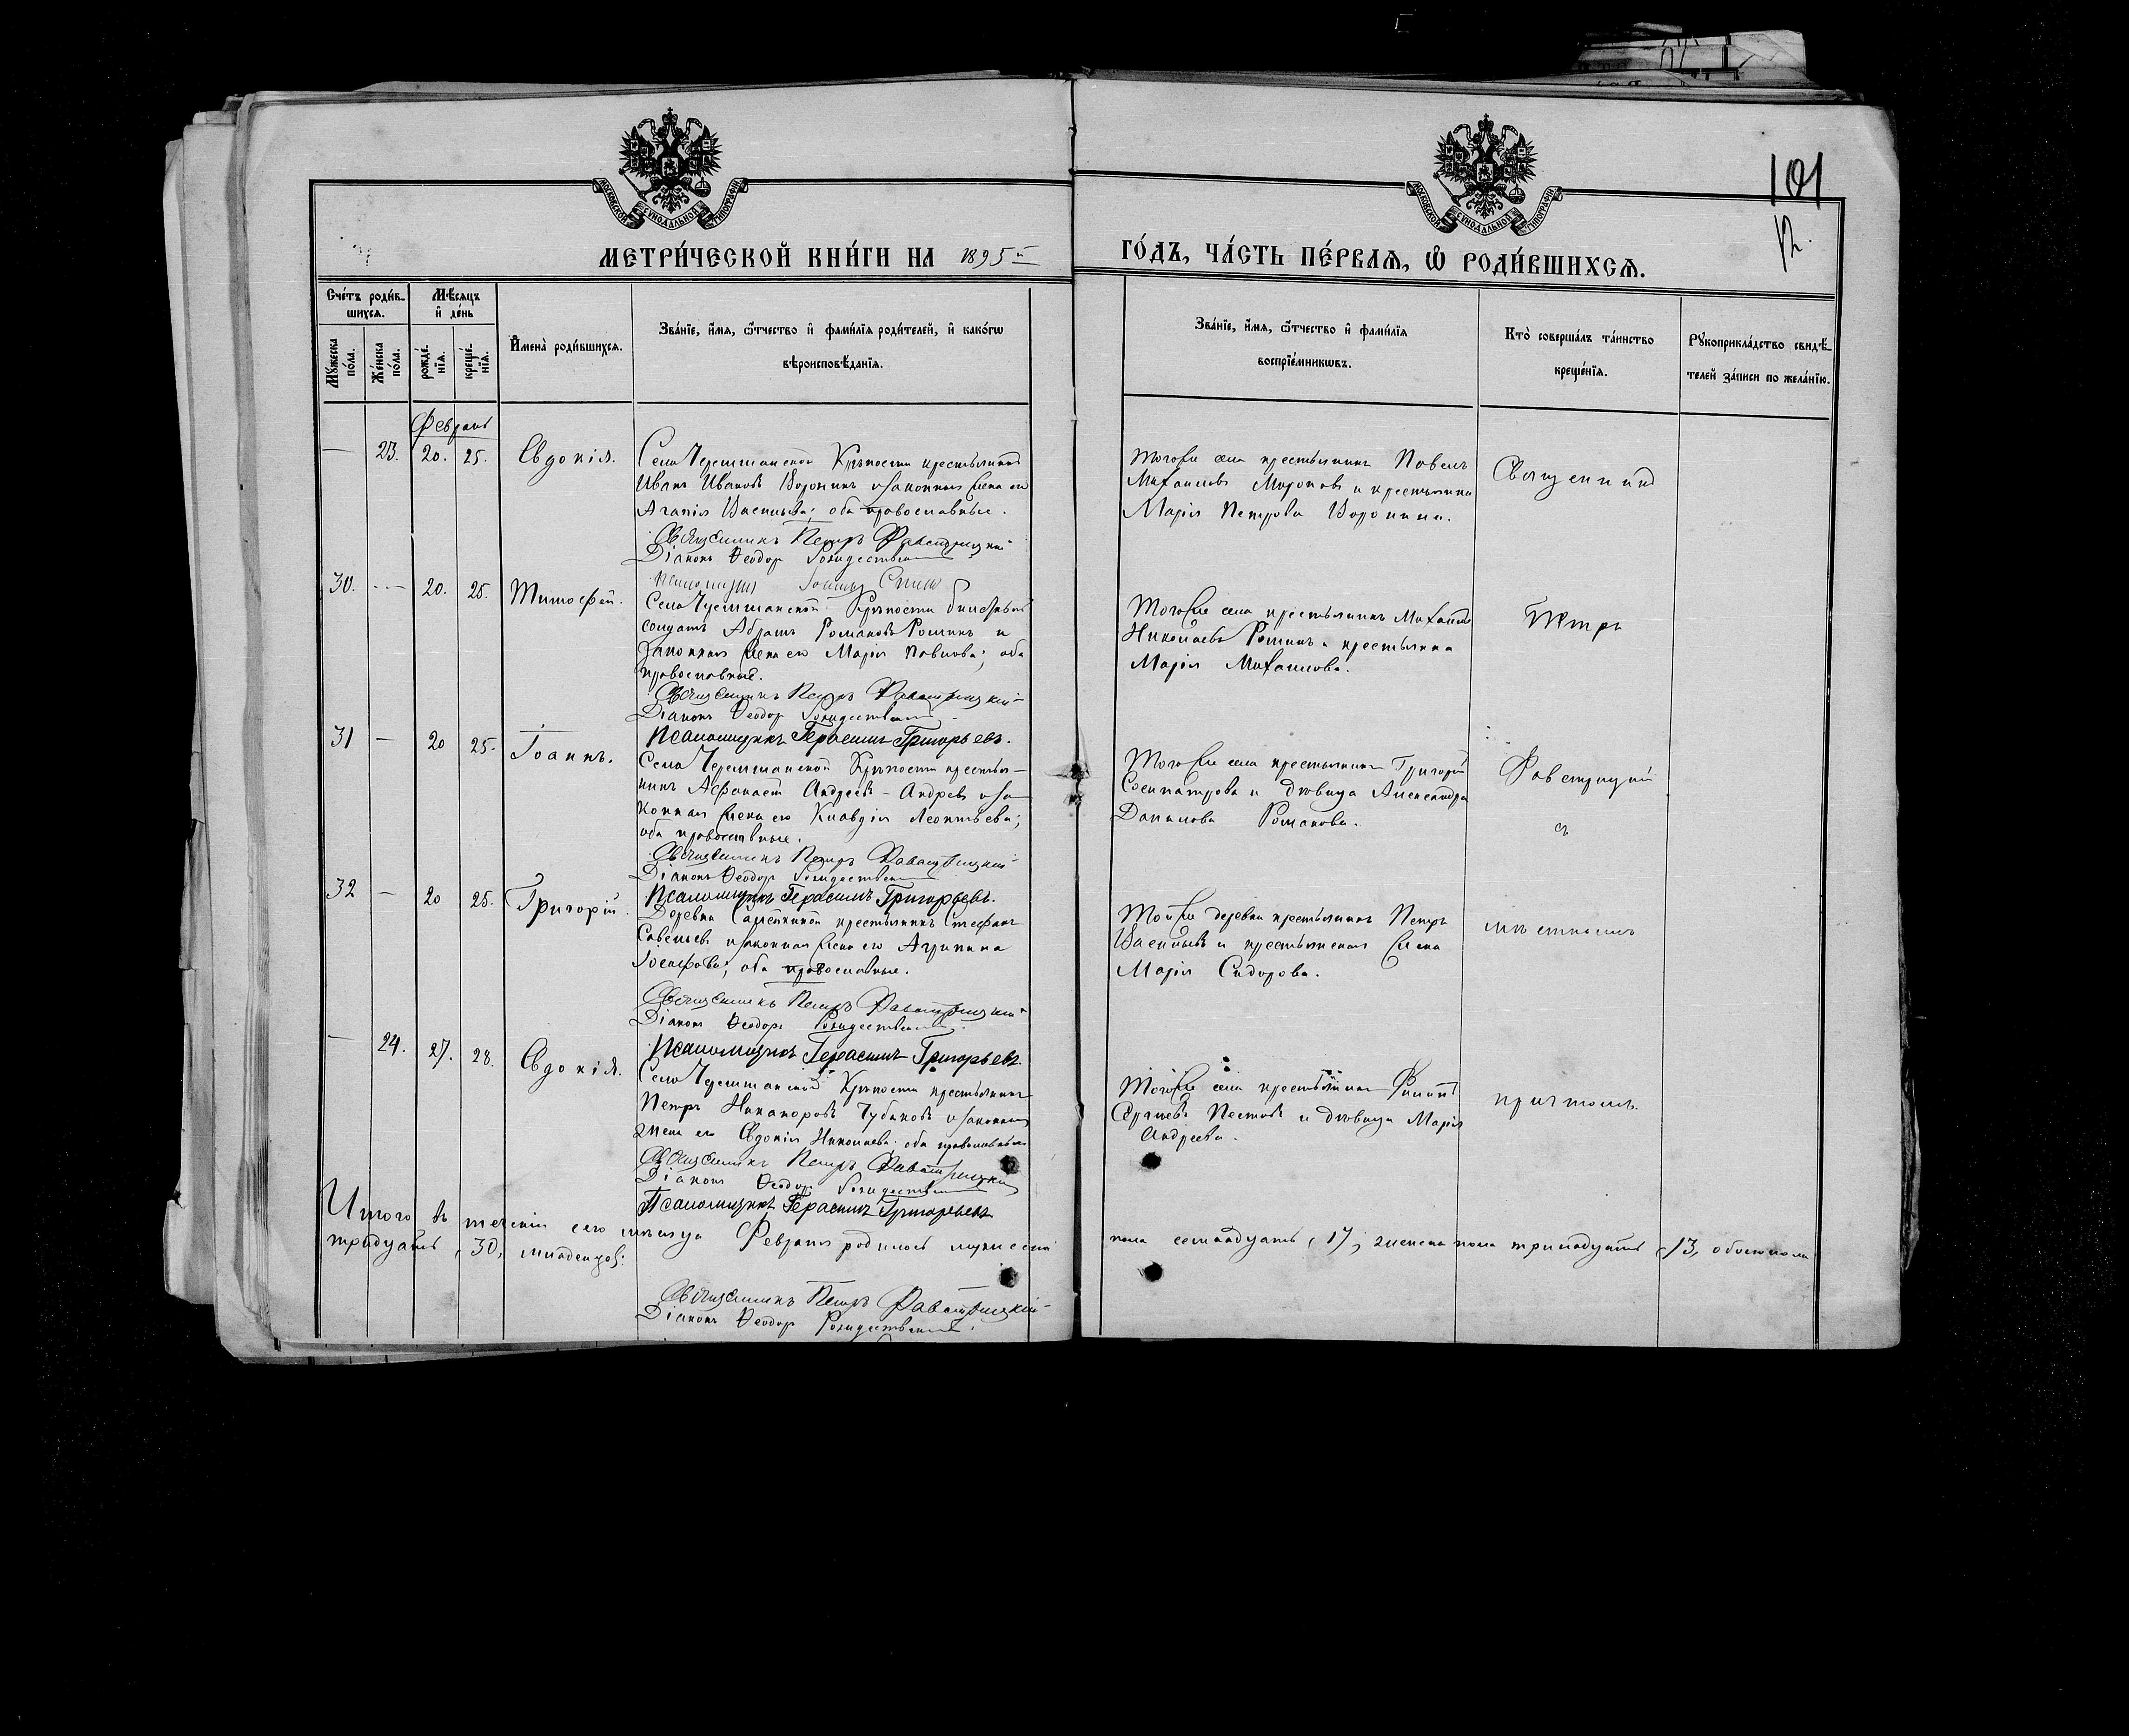 101
12.
МОСКОВСКОЙ СѴНОДАЛЬНОЙ ТИПОГРАФІИ
МОСКОВСКОЙ СѴНОДАЛЬНОЙ ТИПОГРАФІИ
МЕТРИ́ЧЕСКОЙ КНИ́ГИ НА 1895й ГО́ДЪ, ЧА́СТЬ ПЕ́РВАѦ, Ѡ РОДИ́ВШИХСѦ.
Сче́тъ роди́в-
шихсѧ.
Мꙋ́жеска по́ла.
Же́нска по́ла.
Мѣ́сѧцъ и҆ де́нь
рожде́нїѧ.
креще́нїѧ.
И҆мена̀ роди́вшихсѧ.
Зва́нїе, и҆́мѧ, ѻ҆́тчество и҆ фами́лїѧ роди́телей, и҆ како́гѡ
вѣроисповѣ́данїѧ.
Зва́нїе, и҆́мѧ, ѻ҆́тчество и҆ фами́лїѧ
воспрїе́мникѡвъ.
Кто̀ соверша́лъ та́инство
креще́нїѧ.
Рꙋкоприкла́дство свидѣ́-
телей за́писи по жела́нїю.
Февраль
— 23. 20. 25. Евдокія.
Села Черемшанской Крѣпости крестьянинъ
Иванъ Ивановъ Воронинъ и законная жена его
Агапія Васильева; оба православные.
Священникъ Петръ Фавстрицкій
Діаконъ Ѳеодоръ Рождественскій
Тогоже села крестьянинъ Павелъ
Михаиловъ Мироновъ и крестьянка
Марія Петрова Воронина.
Священникъ
30. — 20. 25. Тимоѳей.
Села Черемшанской Крѣпости билетный
солдатъ Абрамъ Романовъ Роминъ и
законная жена его Марія Павлова; оба
православные.
Священникъ Петръ Фавстрицкій
Діаконъ Ѳеодоръ Рождественскій
Псаломщикъ Герасимъ Григорьевъ.
Тогоже села крестьянинъ Михаилъ
Николаевъ Роминъ и крестьянка
Марія Михаилова.
Петръ
31 — 20 25. Іоаннъ.
Села Черемшанской Крѣпости крестья-
нинъ Аѳанасій Андреевъ Андреевъ и за-
конная жена его Клавдія Леонтьева;
оба православные.
Священникъ Петръ Фавстрицкій
Діаконъ Ѳеодоръ Рождественскій
Псаломщикъ Герасимъ Григорьевъ.
Тогоже села крестьянинъ Григорій
Сосипатровъ и дѣвица Александра
Данилова Романова.
Фавстрицкій
съ
32 — 20 25. Григорій.
Деревни крестьянинъ Стефанъ
Савельевъ и законная жена его Агрипина
Іосифова; оба православные.
Священникъ Петръ Фавстрицкій
Діаконъ Ѳеодоръ Рождественскій
Псаломщикъ Герасимъ Григорьевъ.
Тойже деревни крестьянинъ Петръ
Васильевъ и крестьянская жена
Марія Сидорова.
мѣстнымъ
— 24. 27. 28. Евдокія.
Села Черемшанской Крѣпости крестьянинъ
Петръ Никаноровъ Чубаковъ и законная
жена его Евдокія Николаева оба православные
Священникъ Петръ Фавстрицкій
Діаконъ Ѳеодоръ Рождественскій
Псаломщикъ Герасимъ Григорьевъ
Тогоже села крестьянинъ Филиппъ
Сергѣевъ Пестовъ и дѣвица Марія
Андреева.
причтомъ.
Итого въ теченіи сего мѣсяца Февраля родилось мужеска пола семнадцать, 17, женска пола тринадцать, 13, обоего пола
тридцать, 30, младенцевъ.
Священникъ Петръ Фавстрицкій
Діаконъ Ѳеодоръ Рождественскій.